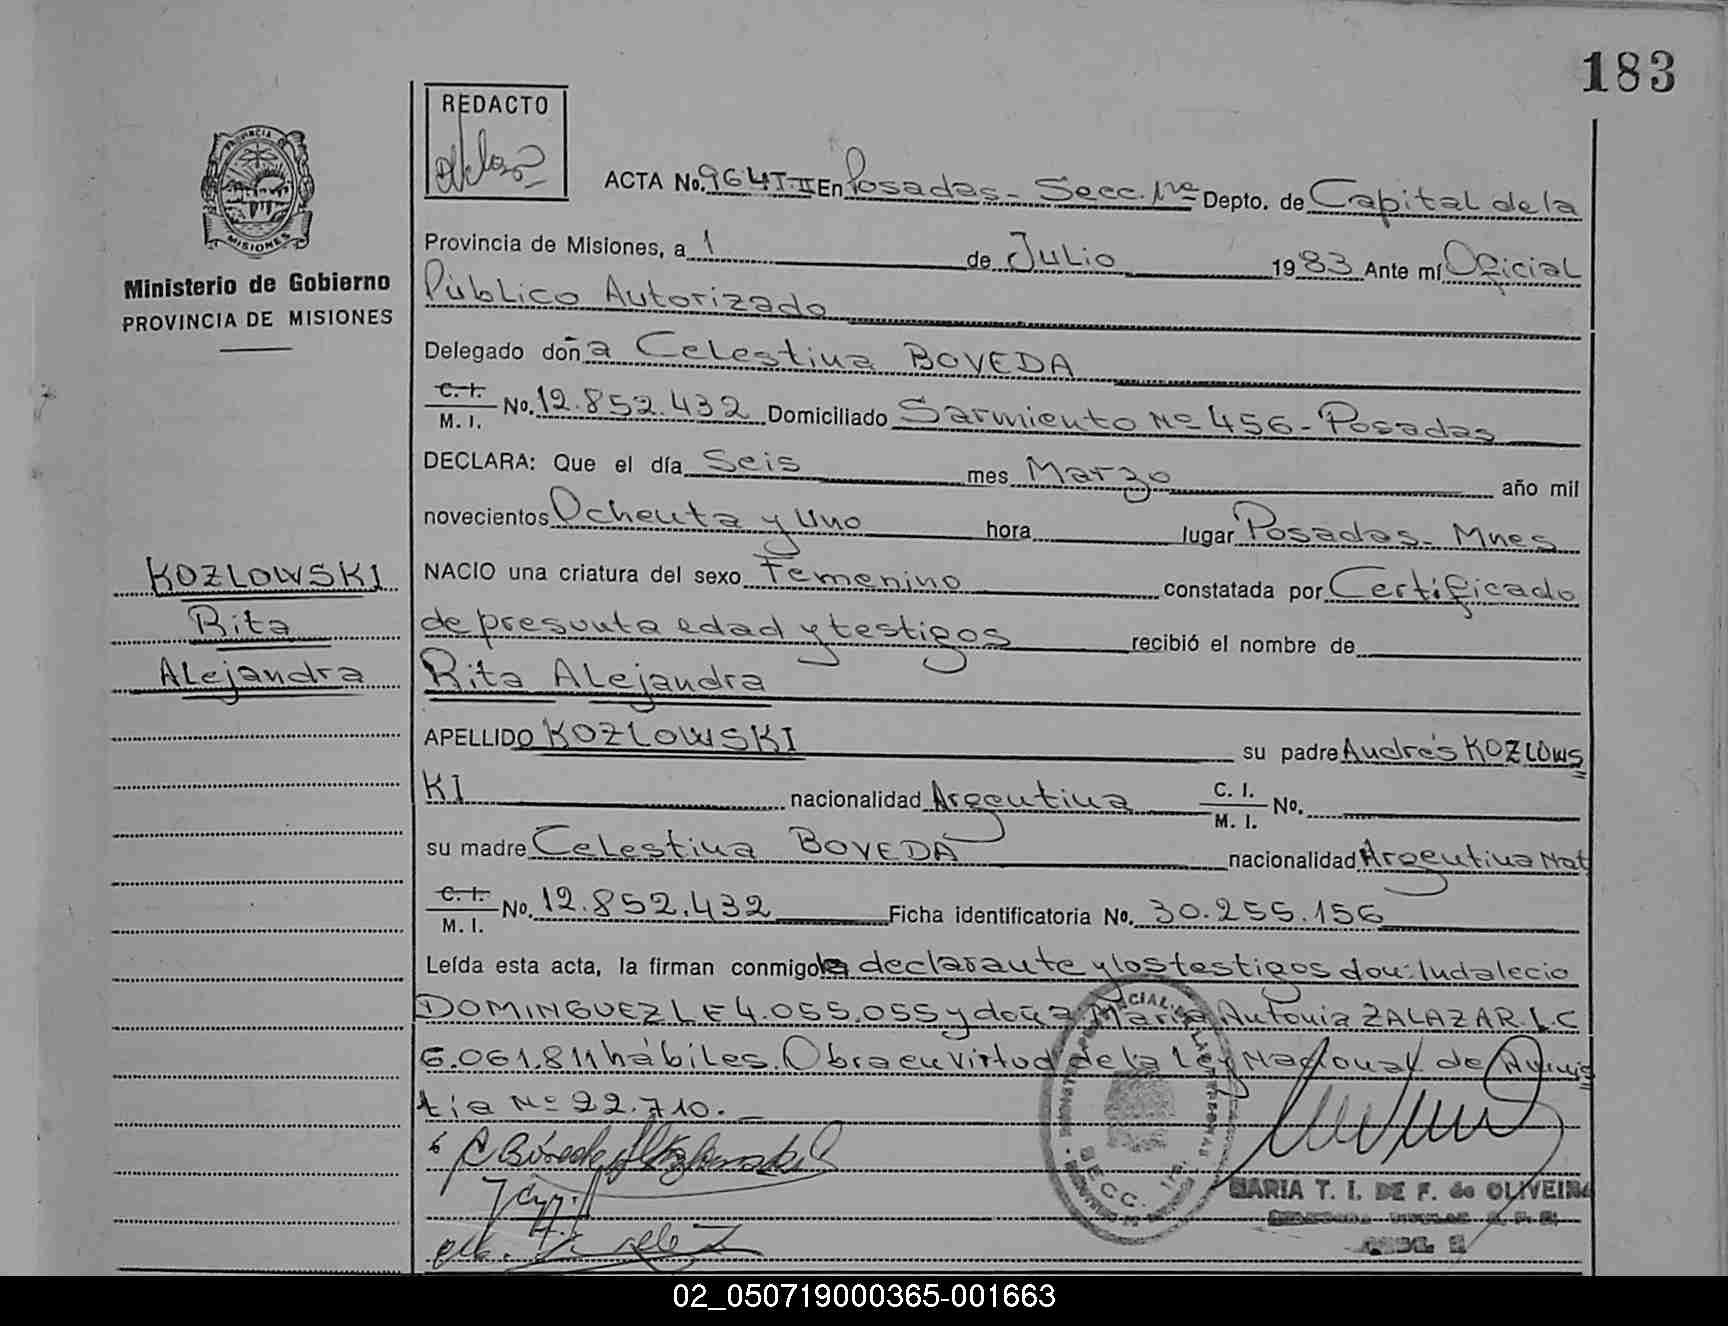 183
REDACTO
ACTA No. 964 T-II En Posadas - Secc. 1ra Depto. de Capital de la
Provincia de Misiones, a 1 de Julio 1983 Ante mí Oficial
Público Autorizado
Delegado doña Celestina BOVEDA
C. I.
M. I. No. 12.852.432 Domiciliado Sarmiento Nº 456 - Posadas
DECLARA: Que el día Seis mes Marzo año mil
novecientos Ochenta y Uno hora lugar Posadas - Mnes
NACIO una criatura del sexo Femenino constatada por Certificado
de presunta edad y testigos recibió el nombre de
Rita Alejandra
APELLIDO KOZLOWSKI su padre Andrés KOZLOWS
KI nacionalidad Argentina C. I. M. I. No.
su madre Celestina BOVEDA nacionalidad Argentina Nat
C. I.
M. I. No. 12.852.432 Ficha identificatoria No. 30.255.156
Leída esta acta, la firman conmigo la declarante y los testigos don: Indalecio
DOMINGUEZ LE 4.055.055 y doña María Antonia ZALAZAR. L.C
6.061.811 hábiles. Obra en virtud de la Ley Nacional de Amnis
tia Nº 22.710.-
PROVINCIA DE
MISIONES
Ministerio de Gobierno
PROVINCIA DE MISIONES
KOZLOWSKI
Rita
Alejandra
SECC. 1ra.
MARIA T. I. DE F. de OLIVEIRA
02_050719000365-001663